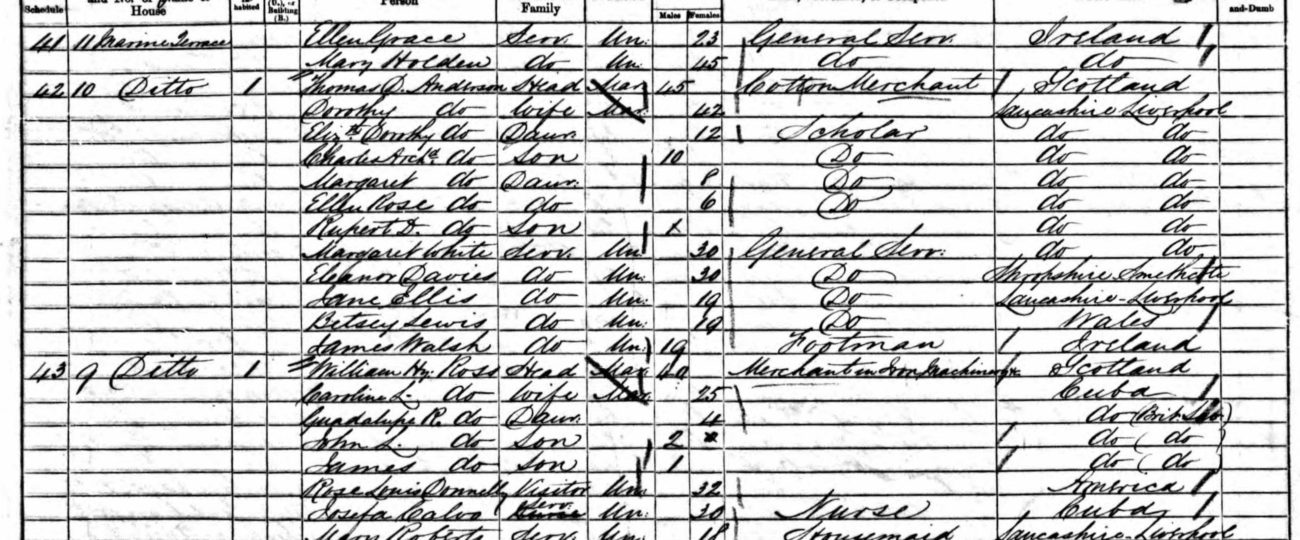 Schedule House habited (U.), or Building (B.) Person Family Males Females and-Dumb
41 11 Marine Terrace Ellen Grace Serv. Un. 23 General Serv. Ireland
Mary Holden do Un. 45 do do
42 10 Ditto 1 Thomas D. Anderson Head Mar 45 Cotton Merchant Scotland
Dorothy do Wife Mar. 42 Lancashire Liverpool
Eliz.th Dorothy do Daur. 12 Scholar do do
Charles Arch.d do Son 10 Do do do
Margaret do Daur. 8 Do do do
Ellen Rose do do 6 Do do do
Rupert D. do Son do do
Margaret White Serv. Un. 30 General Serv. do do
Eleanor Davies do Un. 30 Do Shropshire
Jane Ellis do Un. 19 Do Lancashire-Liverpool
Betsey Lewis do Un. 19 Do Wales
James Walsh do Un. 19 Footman Ireland
43 9 Ditto 1 William Hy. Ross Head Mar. 40 Merchant in Iron Machinery Scotland
Caroline L. do Wife Mar. 25 Cuba
Guadalupe R. do Daur. 4 do (Brit. Sub.)
John L. do Son 2 do (do)
James do Son 1 do (do)
Rose Louis Donnelly Visitor Un. 32 America
Josefa Calvo Serv. Un. 30 Nurse Cuba
Mary Roberts Serv. Un. 18 Housemaid Lancashire-Liverpool